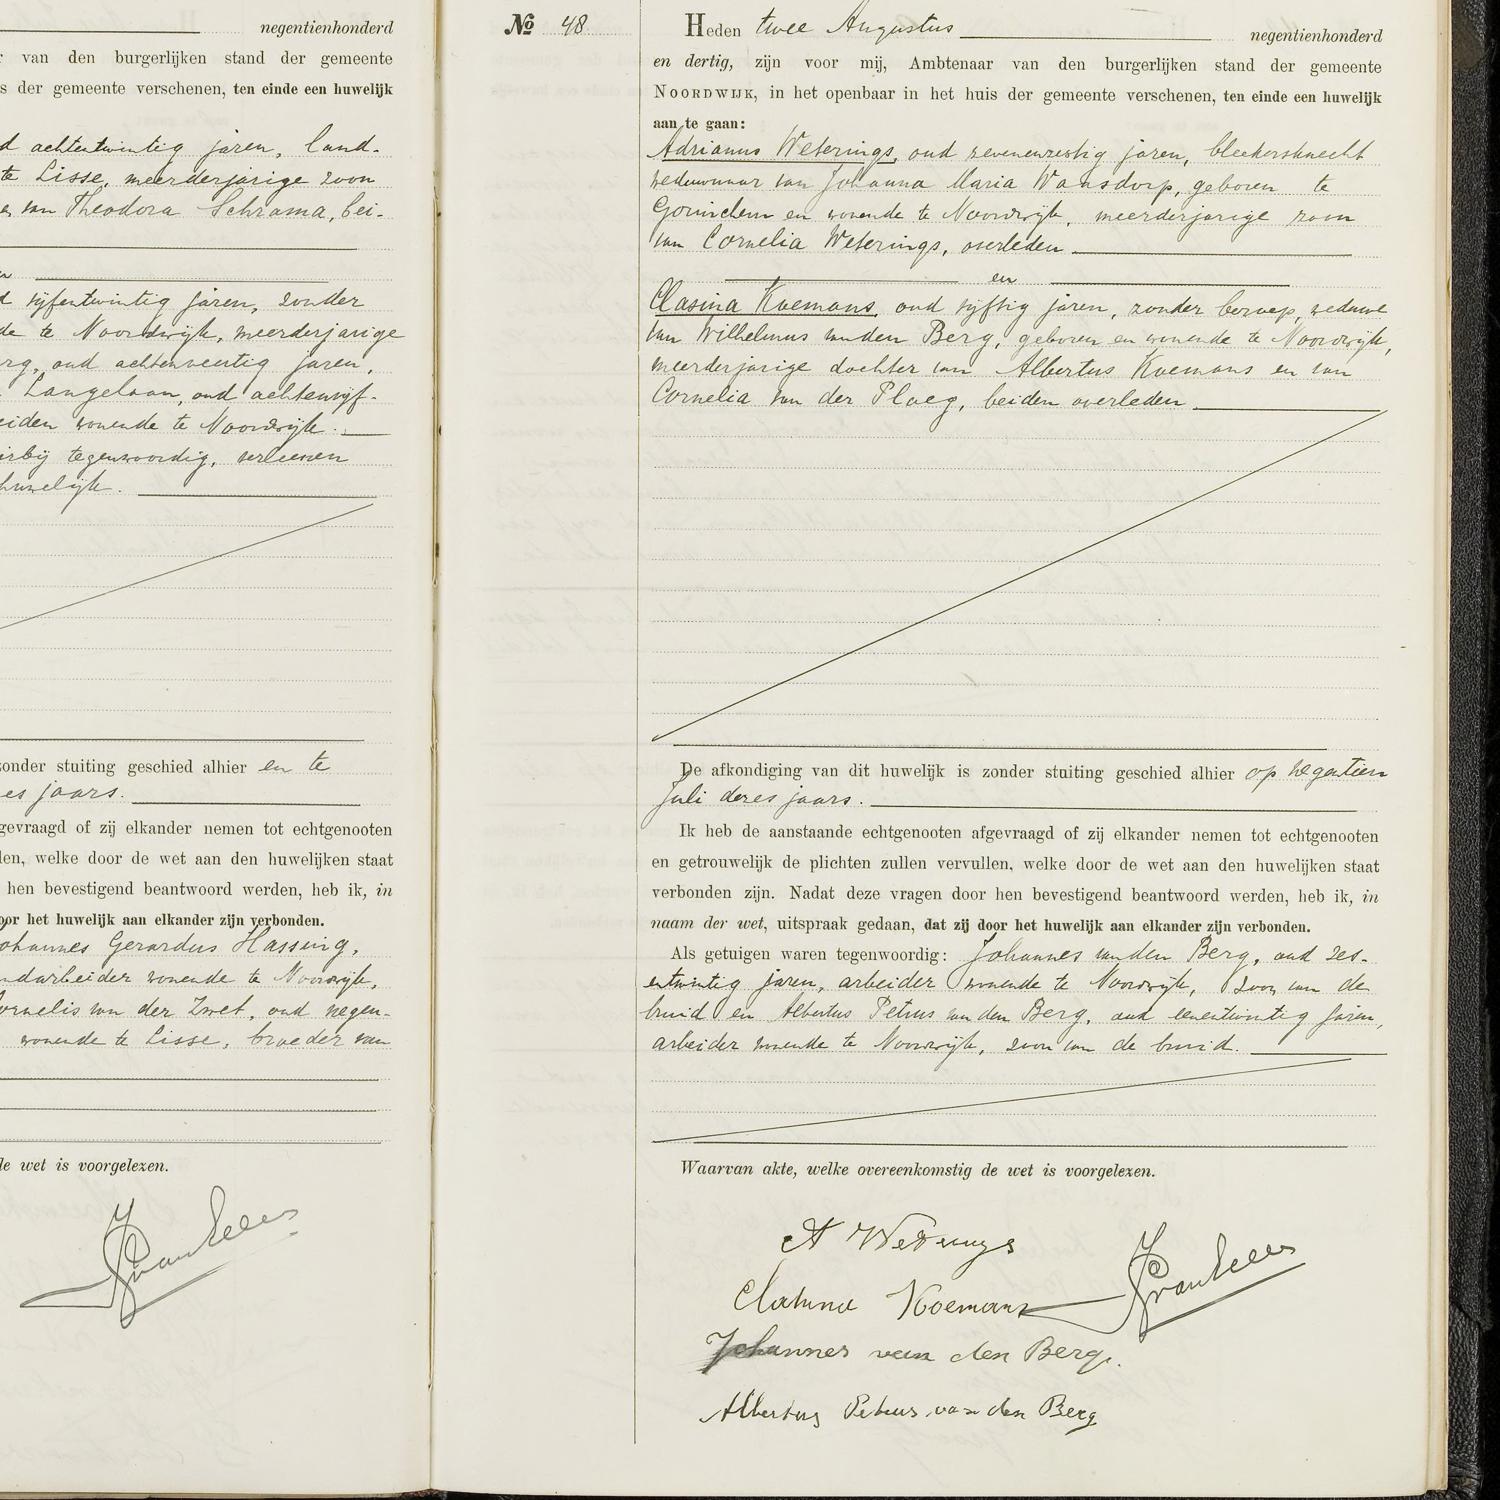 negentienhonderd
van den burgerlijken stand der gemeente
s der gemeente verschenen, ten einde een huwelijk
d achtentwintig jaren, land-
te Lisse, meerderjarige zoon
en van Theodora Schrama, bei-
d vijfentwintig jaren, zonder
de te Noordwijk, meerderjarige
rg, oud achtenveertig jaren,
Langelaan, oud achtenvijf-
eiden wonende te Noordwijk.
rbij tegenwoordig, verleenen
huwelijk.
zonder stuiting geschied alhier en te
es jaars.
gevraagd of zij elkander nemen tot echtgenooten
len, welke door de wet aan den huwelijken staat
hen bevestigend beantwoord werden, heb ik, in
oor het huwelijk aan elkander zijn verbonden.
ohannes Gerardus Hassing,
ndarbeider wonende te Noordwijk,
ornelis van der Zwet, oud negen-
wonende te Lisse, broeder van
de wet is voorgelezen.
No 48
Heden twee Augustus negentienhonderd
en dertig, zijn voor mij, Ambtenaar van den burgerlijken stand der gemeente
NOORDWIJK, in het openbaar in het huis der gemeente verschenen, ten einde een huwelijk
aan te gaan:
Adrianus Weterings, oud zevenenzestig jaren, bleekersknecht
weduwnaar van Johanna Maria Waasdorp, geboren te
Gorinchem en wonende te Noordwijk, meerderjarige zoon
van Cornelia Weterings, overleden
en
Clasina Koemans, oud vijftig jaren, zonder beroep, weduwe
van Wilhelmus van den Berg, geboren en wonende te Noordwijk,
meerderjarige dochter van Albertus Koemans en van
Cornelia van der Ploeg, beiden overleden
De afkondiging van dit huwelijk is zonder stuiting geschied alhier op negentien
Juli dezes jaars.
Ik heb de aanstaande echtgenooten afgevraagd of zij elkander nemen tot echtgenooten
en getrouwelijk de plichten zullen vervullen, welke door de wet aan den huwelijken staat
verbonden zijn. Nadat deze vragen door hen bevestigend beantwoord werden, heb ik, in
naam der wet, uitspraak gedaan, dat zij door het huwelijk aan elkander zijn verbonden.
Als getuigen waren tegenwoordig: Johannes van den Berg, oud zes-
entwintig jaren, arbeider wonende te Noordwijk, zoon van de
bruid en Albertus Petrus van den Berg, oud eenentwintig jaren,
arbeider wonende te Noordwijk, zoon van de bruid.
Waarvan akte, welke overeenkomstig de wet is voorgelezen.
A Weterings
Clasina Koemans
Johannes van den Berg.
Albertus Petrus van den Berg